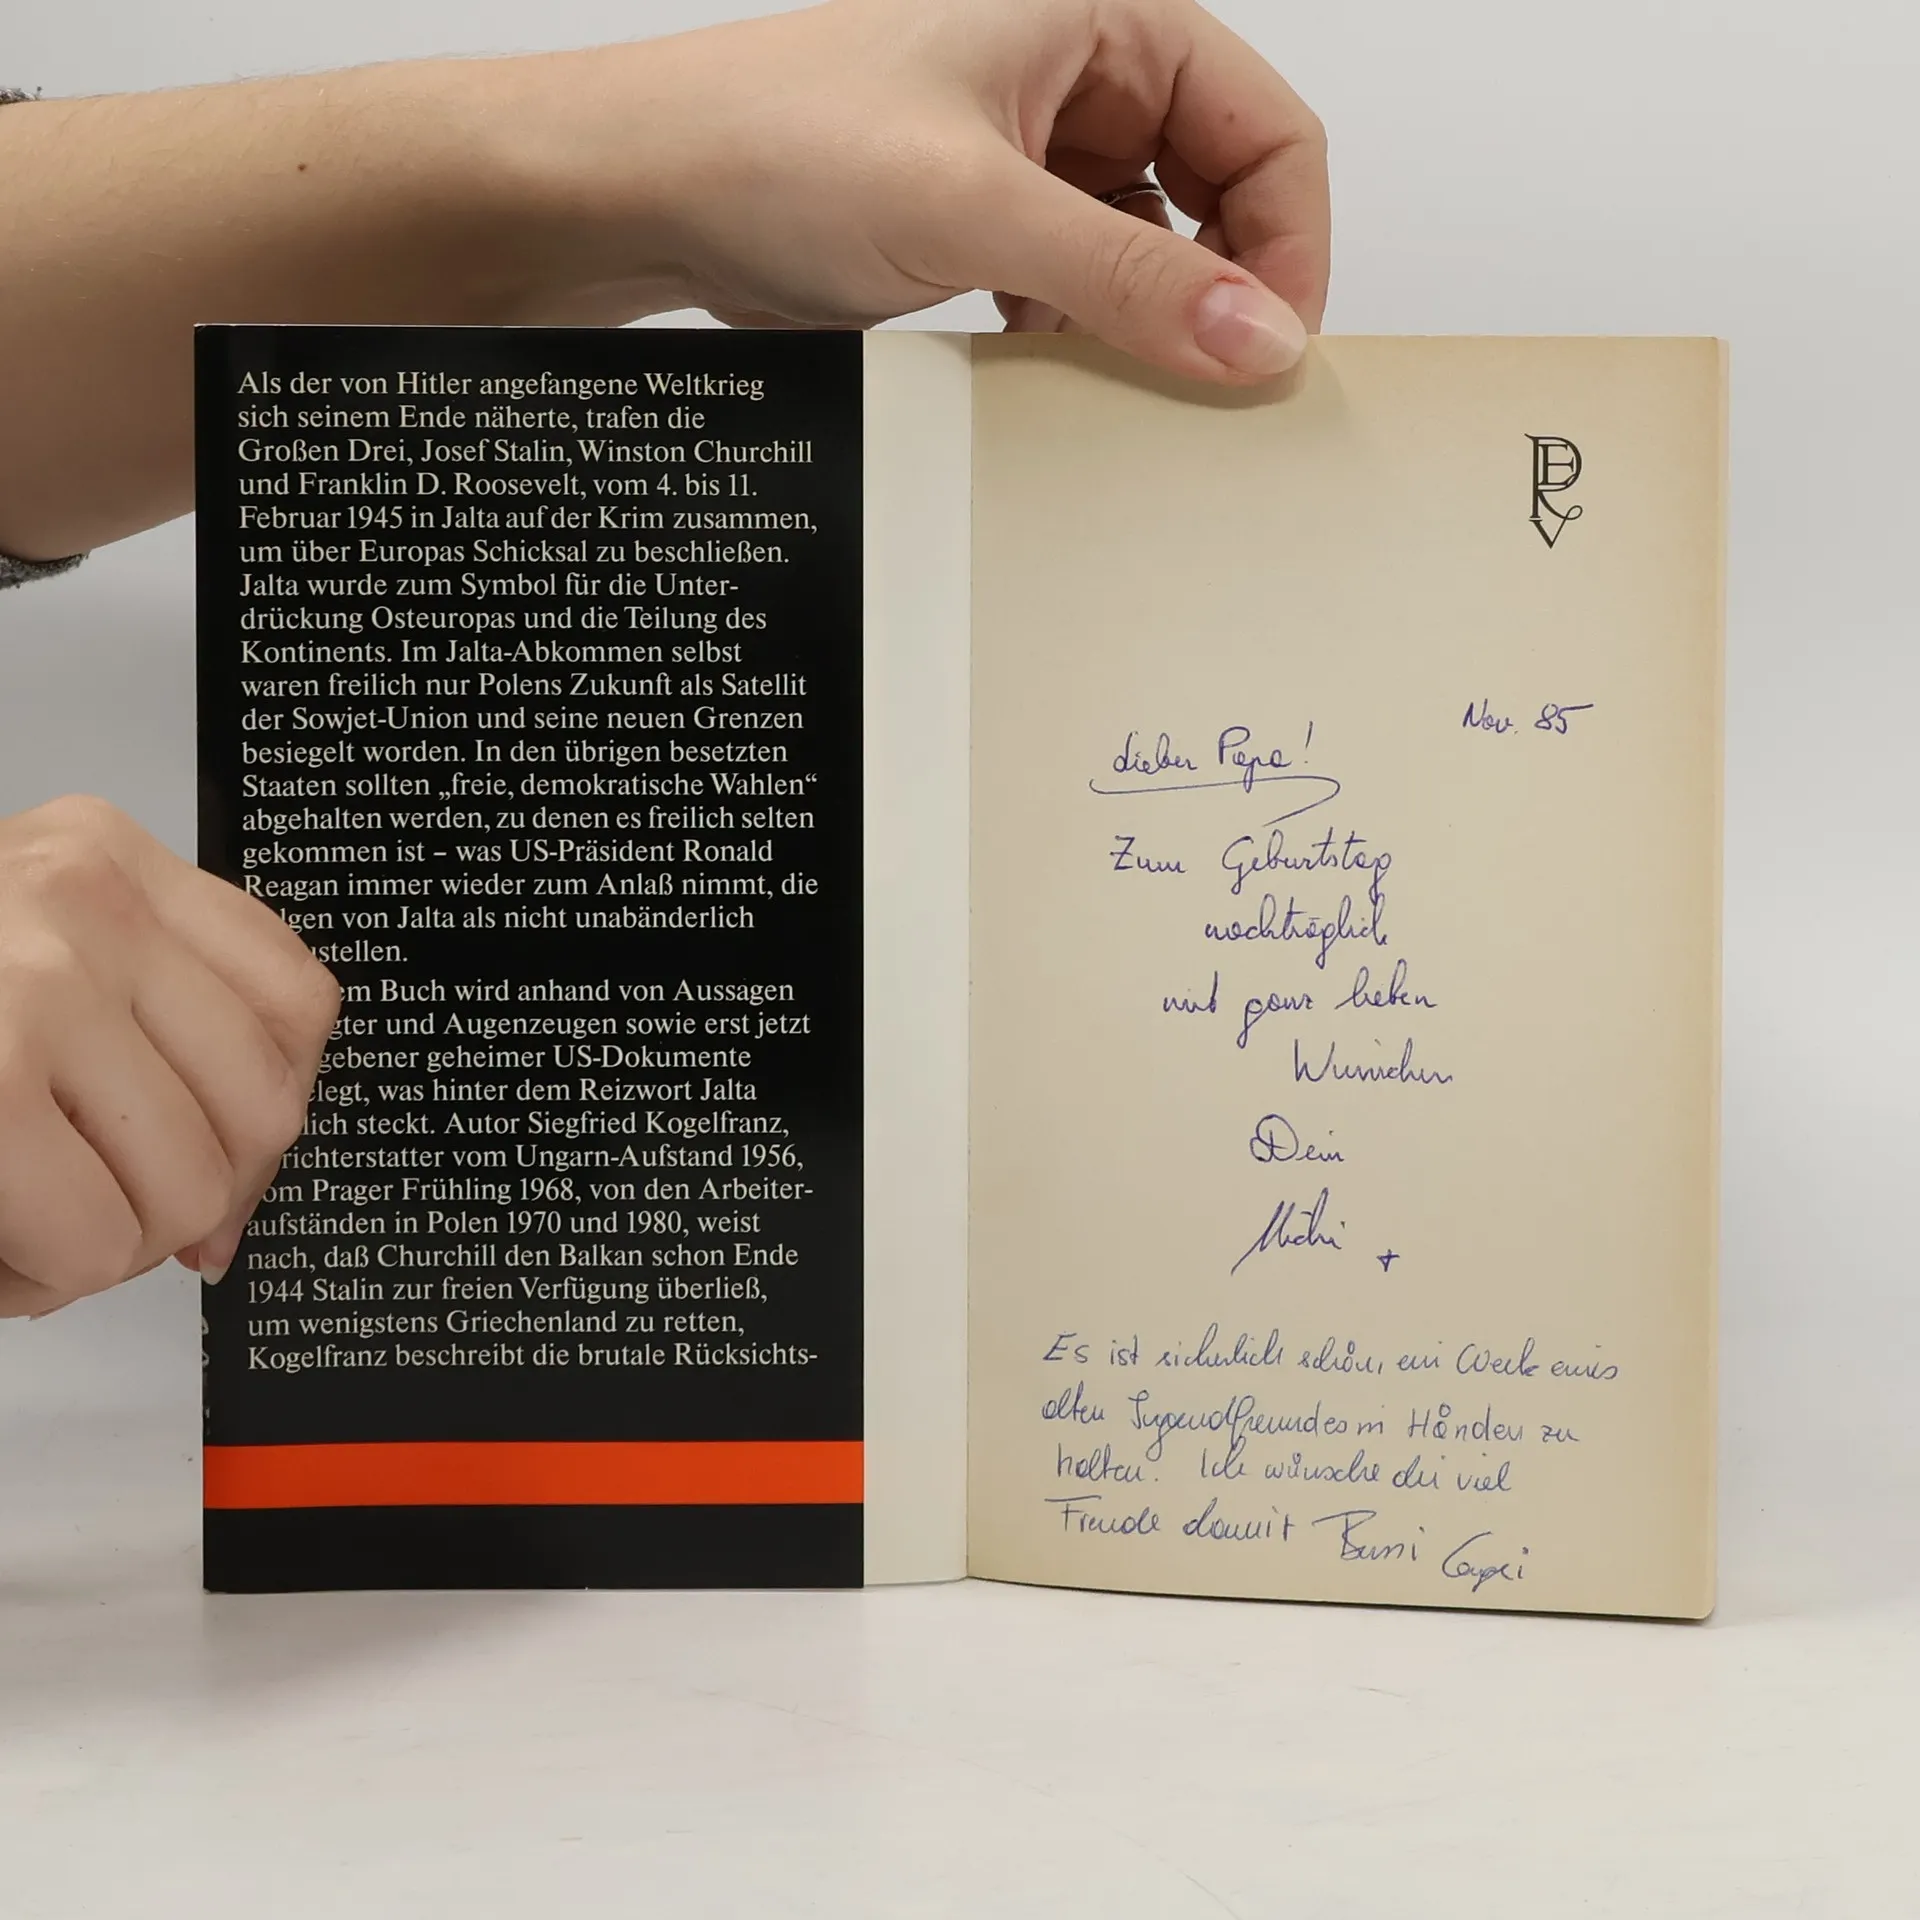 Als der von Hitler angefangene Weltkrieg
sich seinem Ende näherte, trafen die
Großen Drei, Josef Stalin, Winston Churchill
und Franklin D. Roosevelt, vom 4. bis 11.
Februar 1945 in Jalta auf der Krim zusammen,
um über Europas Schicksal zu beschließen.
Jalta wurde zum Symbol für die Unter-
drückung Osteuropas und die Teilung des
Kontinents. Im Jalta-Abkommen selbst
waren freilich nur Polens Zukunft als Satellit
der Sowjet-Union und seine neuen Grenzen
besiegelt worden. In den übrigen besetzten
Staaten sollten „freie, demokratische Wahlen“
abgehalten werden, zu denen es freilich selten
gekommen ist – was US-Präsident Ronald
Reagan immer wieder zum Anlaß nimmt, die
lgen von Jalta als nicht unabänderlich
stellen.
em Buch wird anhand von Aussagen
gter und Augenzeugen sowie erst jetzt
gebener geheimer US-Dokumente
elegt, was hinter dem Reizwort Jalta
lich steckt. Autor Siegfried Kogelfranz,
richterstatter vom Ungarn-Aufstand 1956,
om Prager Frühling 1968, von den Arbeiter-
aufständen in Polen 1970 und 1980, weist
nach, daß Churchill den Balkan schon Ende
1944 Stalin zur freien Verfügung überließ,
um wenigstens Griechenland zu retten,
Kogelfranz beschreibt die brutale Rücksichts-
Nov. 85
Lieber Papa!
Zum Geburtstag
nachträglich
mit ganz lieben
Wünschen
Dein
Michi +
Es ist sicherlich schön, ein Werk eines
alten Jugendfreundes in Händen zu
halten. Ich wünsche dir viel
Freude damit Bussi